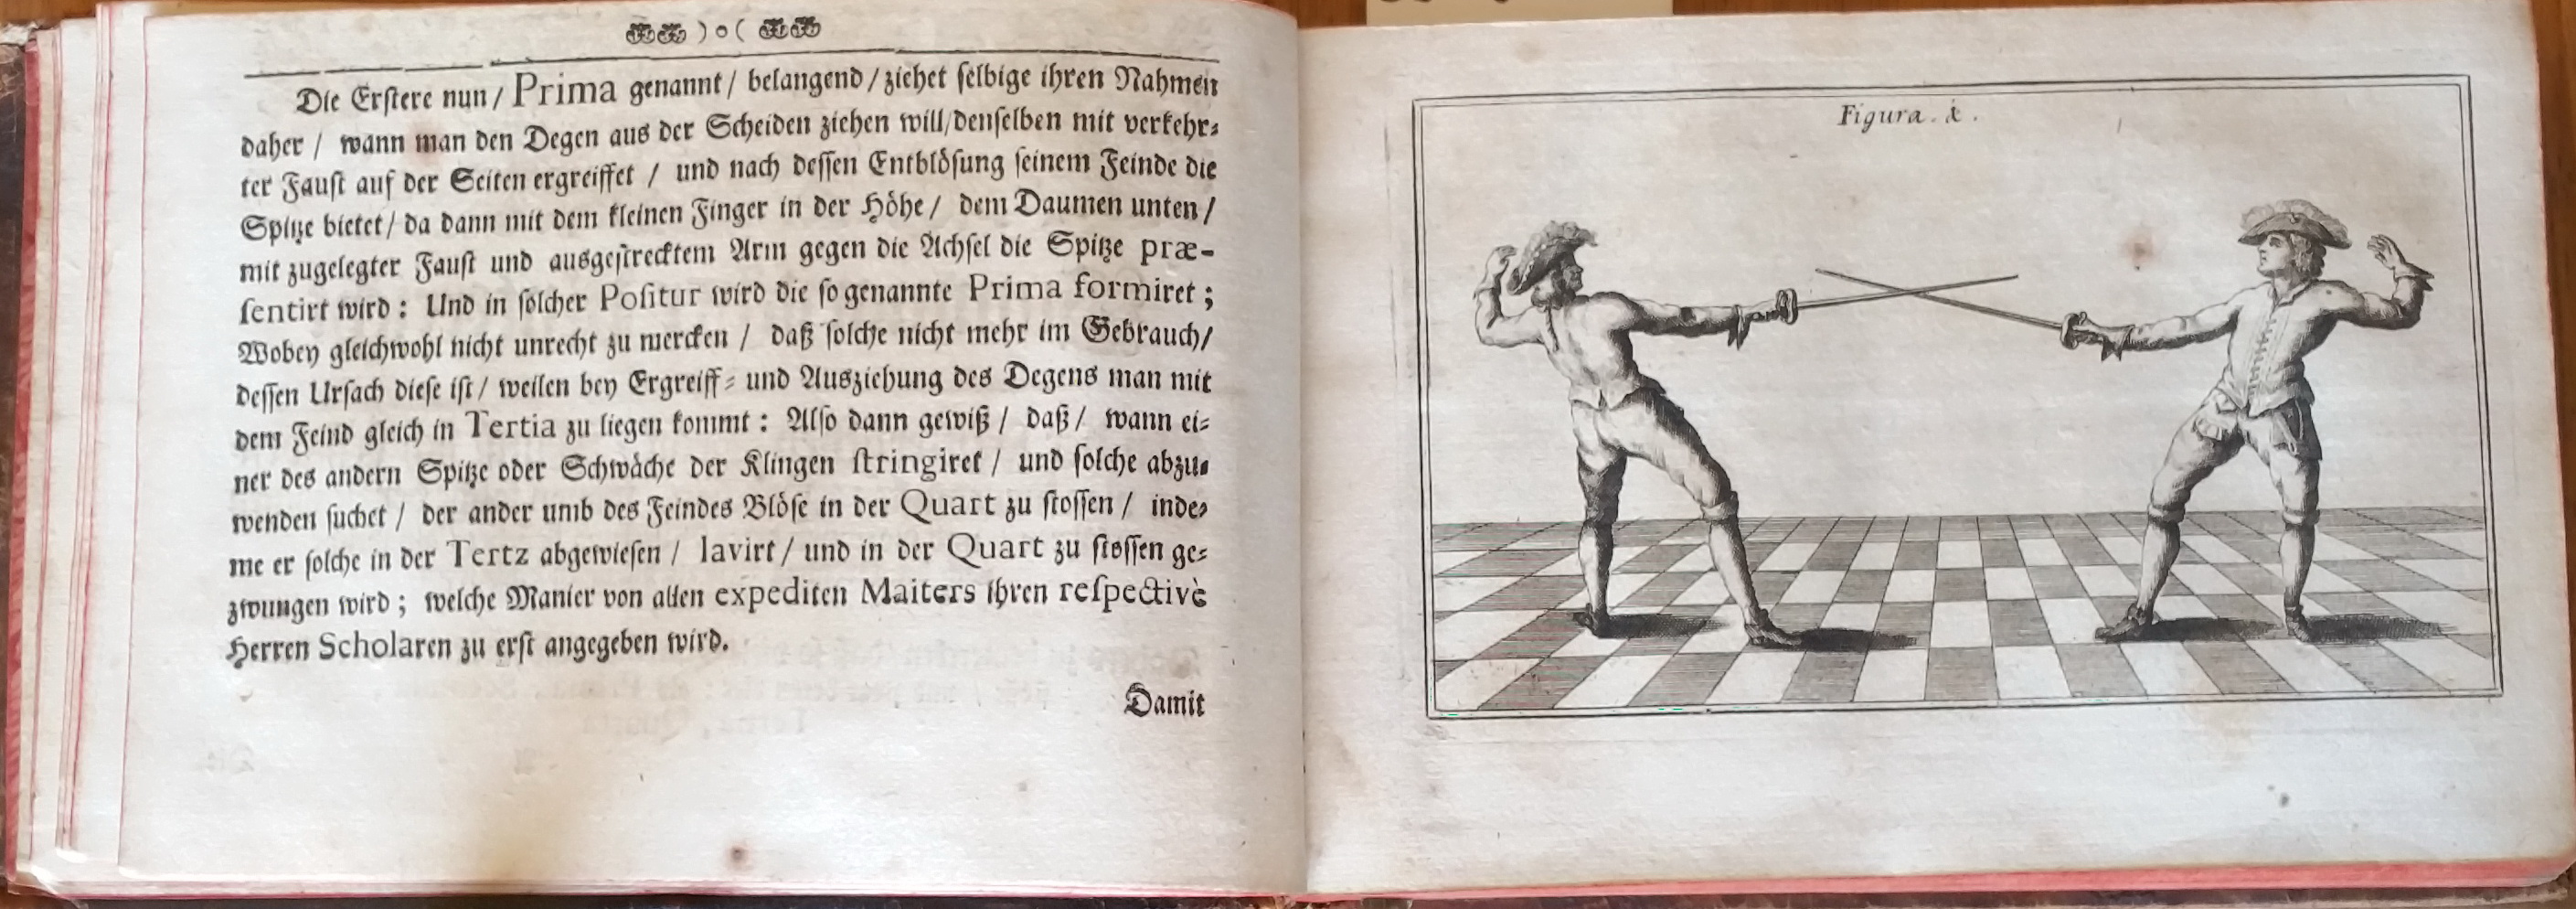 ) o (
Die Erſtere nun / Prima genannt / belangend / ziehet ſelbige ihren Nahmen
daher / wann man den Degen aus der Scheiden ziehen will / denſelben mit verkehr⸗
ter Fauſt auf der Seiten ergreiffet / und nach deſſen Entblöſung ſeinem Feinde die
Spitze bietet / da dann mit dem kleinen Finger in der Höhe / dem Daumen unten /
mit zugelegter Fauſt und ausgeſtrecktem Arm gegen die Achſel die Spitze præ-
ſentirt wird : Und in ſolcher Poſitur wird die ſo genannte Prima formiret ;
Wobey gleichwohl nicht unrecht zu mercken / daß ſolche nicht mehr im Gebrauch /
deſſen Urſach dieſe iſt / weilen bey Ergreiff⸗ und Ausziehung des Degens man mit
dem Feind gleich in Tertia zu liegen kommt : Alſo dann gewiß / daß / wann ei⸗
ner des andern Spitze oder Schwäche der Klingen ſtringiret / und ſolche abzu⸗
wenden ſuchet / der ander umb des Feindes Blöſe in der Quart zu ſtoſſen / inde⸗
me er ſolche in der Tertz abgewieſen / lavirt / und in der Quart zu ſtoſſen ge⸗
zwungen wird ; welche Manier von allen expediten Maiters ihren reſpectivè
Herren Scholaren zu erſt angegeben wird.
Damit
Figura .